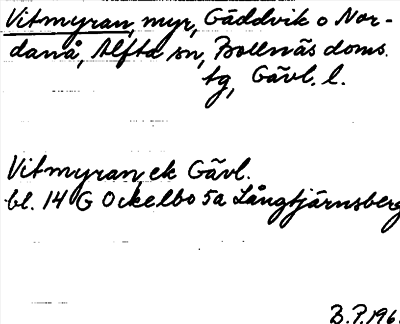 Vitmyran, myr, Gäddvik o Nor-
danå, Alfta sn, Bollnäs doms.
tg, Gävl. l.
Vitmyran, ek Gävl.
bl. 14 G Ockelbo 5a Långtjärnsberg
B.P. 196